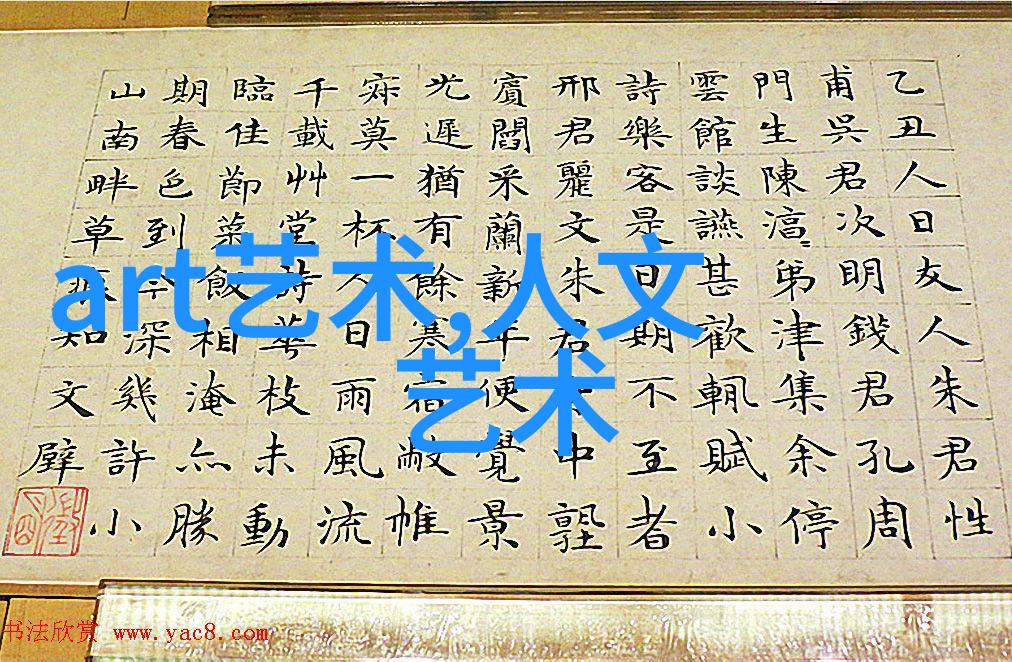 乙丑人日友人朱君性
甫吳君次明錢君孔周
門生陳滈弟津集余停
雲館談讌甚歡輒賦小
詩樂客是日期不至者
邢君麗文朱君中
賓閻采蘭新年便覺景
光遲猶有餘寒宿敝帷
寂莫一杯人日雨風流
千載艸堂詩華枝未動
臨佳節菜飯相淹亦勝
期春色到今深幾許小
山南畔草痕知文壁
art艺术,人文
艺术
书法欣赏 www.yac8.com